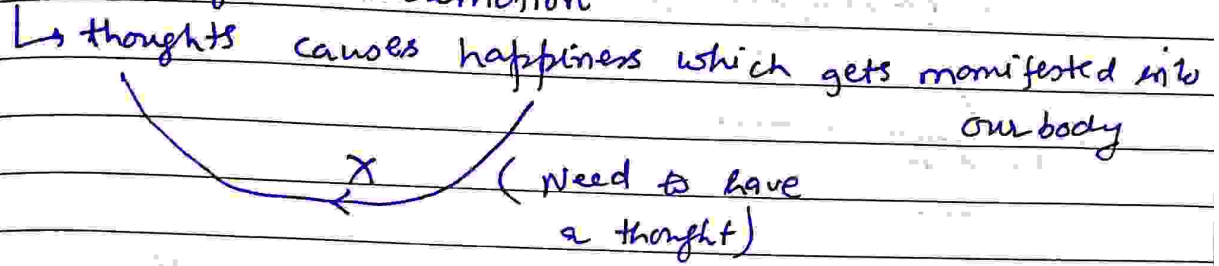 ↳ thoughts causes happiness which gets momifested into
our body
X
(Need to have
a thought)